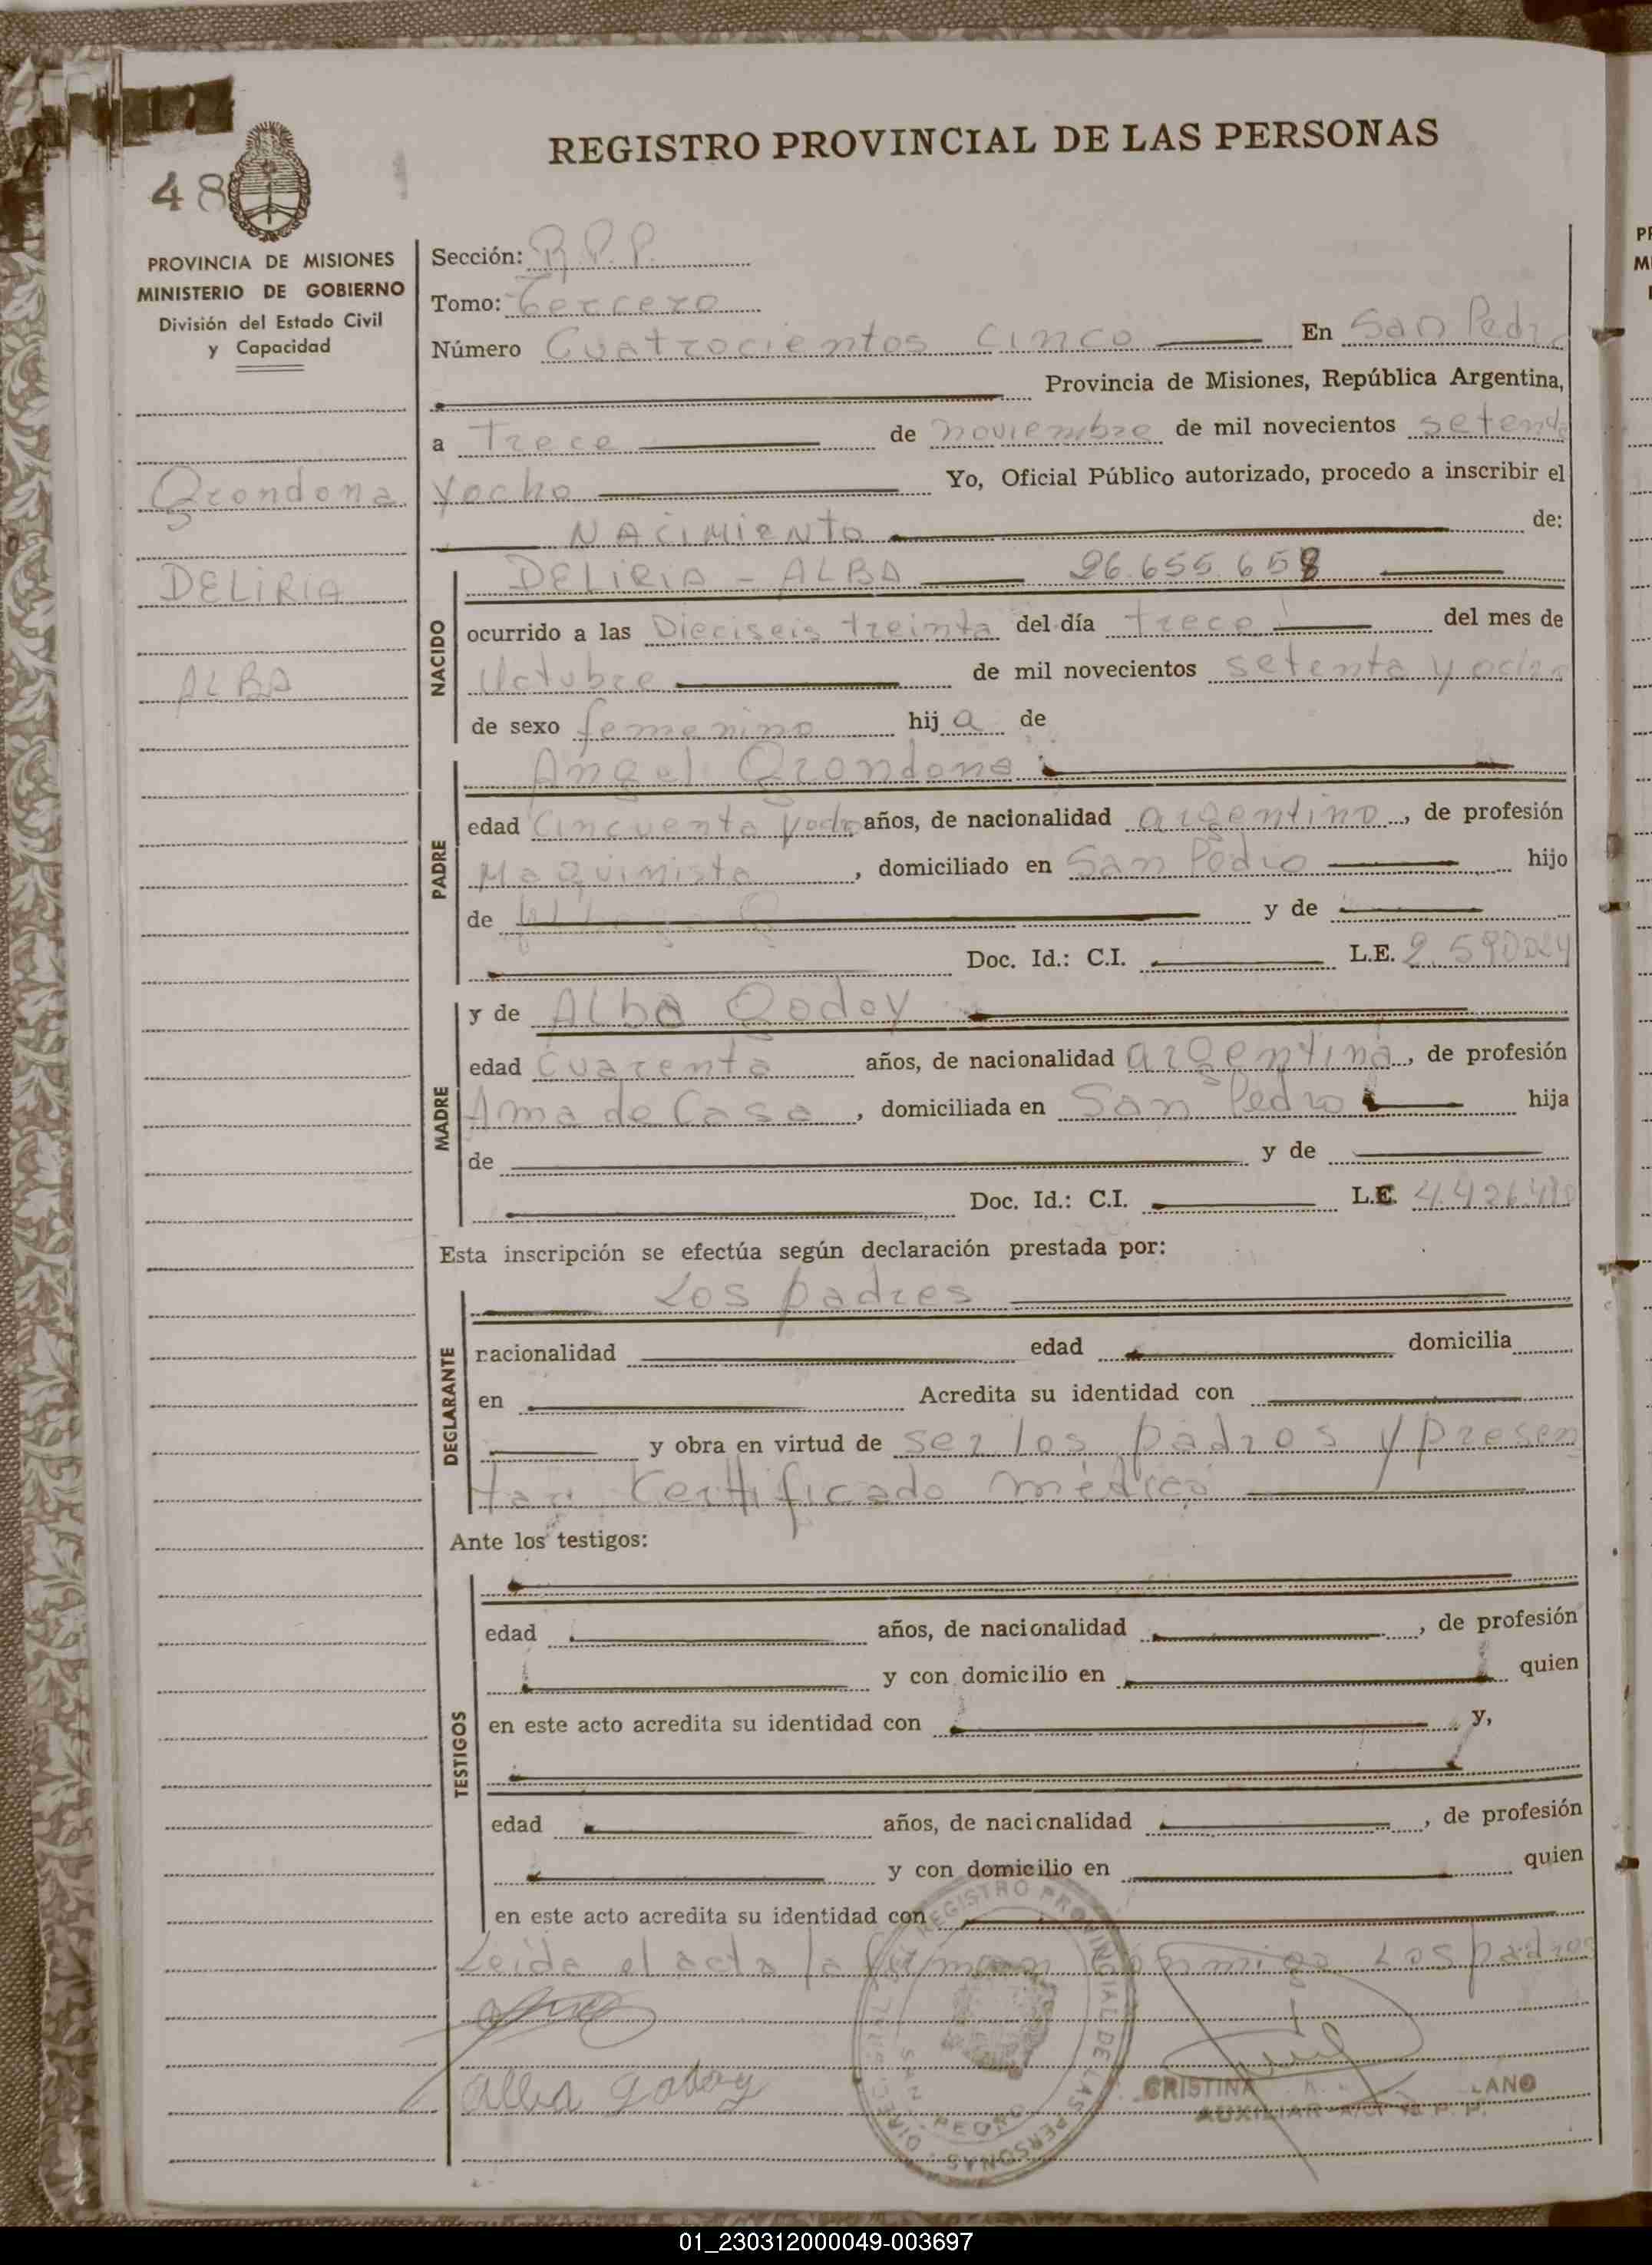 REGISTRO PROVINCIAL DE LAS PERSONAS
48
PROVINCIA DE MISIONES
MINISTERIO DE GOBIERNO
División del Estado Civil
y Capacidad
Grondona
DELIRIA
ALBA
Sección: R.P.P.
Tomo: Tercero
Número Cuatrocientos Cinco En San Pedro
Provincia de Misiones, República Argentina,
a Trece de noviembre de mil novecientos setenta
y ocho Yo, Oficial Público autorizado, procedo a inscribir el
NACIMIENTO de:
NACIDO
DELIRIA - ALBA 26.655.658
ocurrido a las Dieciseis treinta del día trece del mes de
Octubre de mil novecientos setenta y ocho
de sexo femenino hija de
PADRE
Angel Grondona
edad Cincuenta y ocho años, de nacionalidad argentino, de profesión
Maquinista, domiciliado en San Pedro hijo
de y de
Doc. Id.: C.I. L.E. 2.590024
MADRE
y de Alba Godoy
edad Cuarenta años, de nacionalidad argentina, de profesión
Ama de Casa, domiciliada en San Pedro hija
de y de
Doc. Id.: C.I. L.E.
Esta inscripción se efectúa según declaración prestada por:
DECLARANTE
Los padres
nacionalidad edad domicilia
en Acredita su identidad con
y obra en virtud de ser los padros y presen
tar Certificado médico
Ante los testigos:
TESTIGOS
edad años, de nacionalidad , de profesión
y con domicilio en quien
en este acto acredita su identidad con y,
edad años, de nacionalidad , de profesión
y con domicilio en quien
en este acto acredita su identidad con
Leida el acta la firman conmigo Los padres
Alba Godoy
REGISTRO PROVINCIAL DE LAS PERSONAS
SAN PEDRO
CRISTINA
AUXILIAR
01_230312000049-003697